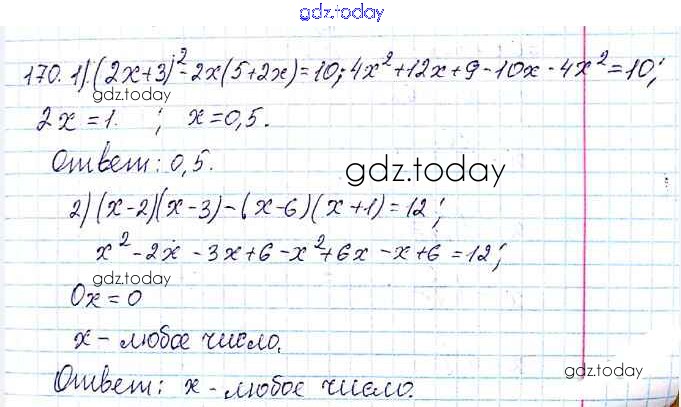 gdz.today
170. 1) (2x+3)²-2x(5+2x)=10; 4x²+12x+9-10x-4x²=10;
gdz.today
2x=1. ; x=0,5.
Ответ: 0,5.
gdz.today
2) (x-2)(x-3)-(x-6)(x+1)=12;
x²-2x-3x+6-x²+6x-x+6=12;
gdz.today
0x=0
x- любое число.
gdz.today
Ответ: x- любое число.